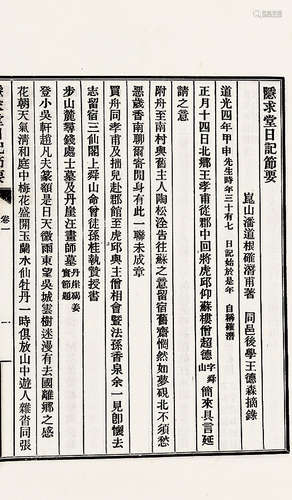 隱求堂日記節要
崑山潘道根確潛甫著　同邑後學王德森摘錄
道光四年甲申先生時年三十有七　日記始於是年　自稱確潛
正月十四日北鄉王孝甫從郡中回將虎邱仰蘇樓僧超德字舜山簡來具言延
請之意
附舟至南村與舊主人陶松涇告往蘇之意留宿舊齋惘然如夢硯北不須愁
惡歲香南聊復寄閒身有此一聯未成章
買舟同孝甫及拙兒赴郡館至虎邱與主僧相會暨法孫香泉余一見卽懷去
志留宿三仙閣上舜山命曾徒孫桂執贄授書
步山麓尋錢處士墓及丹崖汪畫師墓丹崖馮姜實節題
登小吳軒趙凡夫篆額是日天微雨東望吳城雲樹迷漫有去國離鄉之感
花朝天氣淸和庭中梅花盛開玉蘭水仙牡丹一時俱放山中遊人雜沓同張
隱求堂日記節要
卷一
一